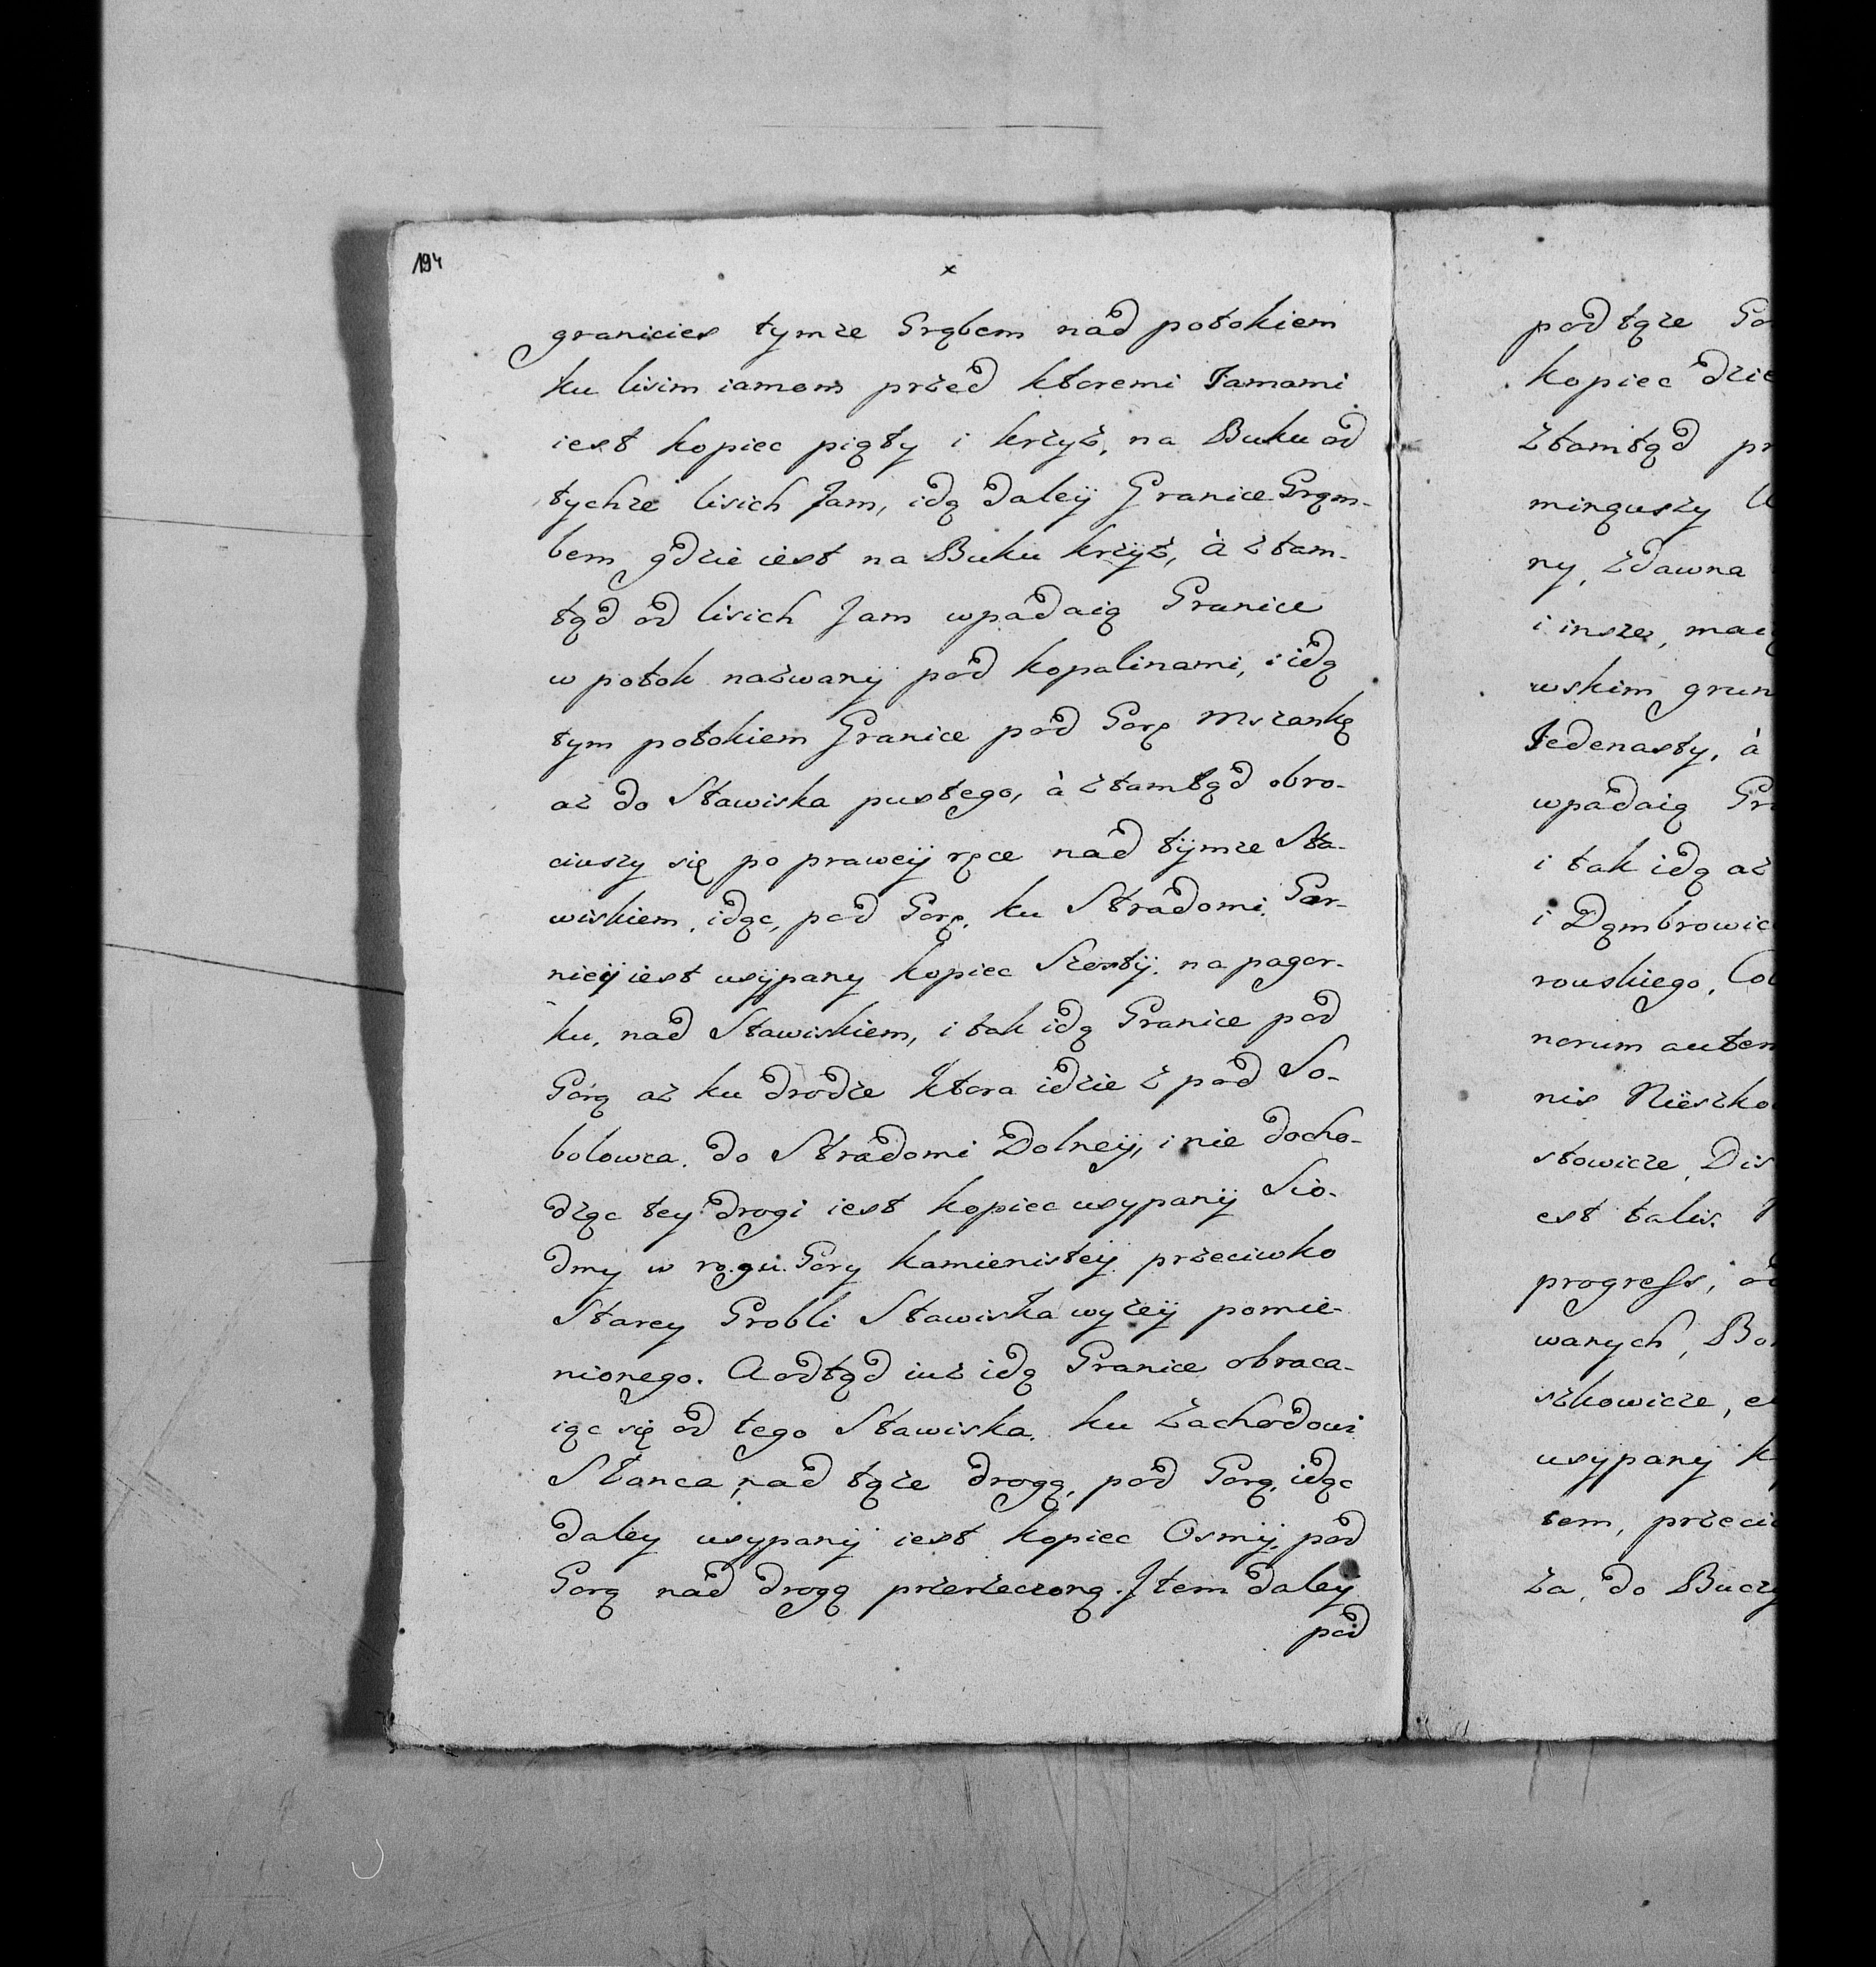 194
x
granicies tymze Grąbem nad potokiem
ku lisim iamom przed ktoremi Iamami
iest kopiec piąty i krzyż, na Buku od
tychże lisich Jam, idą daleÿ Granice Grąm-
bem gdzie iest na Buku krzÿż, à ztam-
tąd od lisich Jam wpadaią Granice
w potok nazwanÿ pod kopalinami, i idą
tym potokiem Granice pod Gorę Mszankę
az do Stawiska pustego, à ztamtąd obro-
ciwszy się po praweÿ ręce nad tÿmze Sta-
wiskiem, idąc, pod Gorę, ku Stradomi Gor-
nieÿ iest usÿpany kopiec Szostÿ, na pagor-
ku, nad Stawiskiem, i tak idą Granice pod
Górą az ku drodze ktora idzie z pod So-
bolowca, do Stradomi Dolneÿ, i nie docho-
dząc tey drogi iest kopiec usypanÿ Sio-
dmy w rogu Gory kamienisteÿ przeciwko
Starey Grobli Stawiska wyzeÿ pomie-
nionego. A odtąd iuz idą Granice obraca-
iąc się od tego Stawiska, ku Zachodowi
Słonca, nad tąze drogą, pod Gorą, idąc
daley usypanÿ iest kopiec Osmÿ, pod
Gorą nad drogą przerzeczoną. Item daleÿ
pod
pod tąze Go
kopiec dzie
Ztamtąd pr
minąwszy
ny, zdawna
i insze, maią
wskim grun
Jedenasty, à
wpadaią Gr
i tak idą az
i Dąmbrowic
rowskiego, Co
norum autem
nis Nieszko
stowicze, Dis
est talis.
progress, od
wanych, Bo
szkowicze, e
usÿpanÿ k
tem, przeci
za, do Buczy